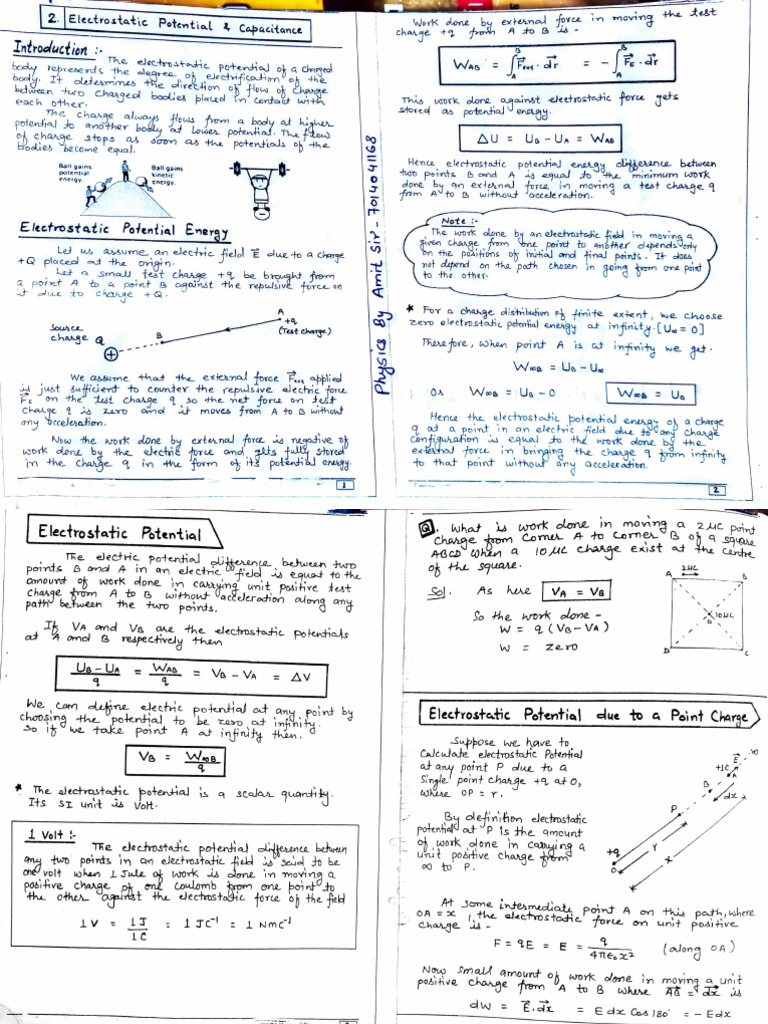 2. Electrostatic Potential & Capacitance
Introduction :-
The electrostatic potential of a charged
body represents the degree of electrification of the
body. It determines the direction of flow of charge
between two charged bodies placed in contact with
each other.
The charge always flows from a body at higher
potential to another body at lower potential. The flow
of charge stops as soon as the potentials of the
bodies become equal.
Ball gains
potential
energy.
Ball gains
kinetic
energy.
Electrostatic Potential Energy
Let us assume an electric field E⃗ due to a charge
+Q placed at the origin.
Let a small test charge +q be brought from
a point A to a point B against the repulsive force on
it due to charge +Q.
Source
charge Q
B
A
+q
(Test charge)
We assume that the external force F⃗ext applied
is just sufficient to counter the repulsive electric force
F⃗E on the test charge q, so the net force on test
charge q is zero and it moves from A to B without
any acceleration.
Now the work done by external force is negative of
work done by the electric force and gets fully stored
in the charge q in the form of its potential energy.
1
Physics By Amit Sir - 7014041168
Work done by external force in moving the test
charge +q from A to B is -
W_AB = ∫_A^B F⃗ext · dr⃗ = - ∫_A^B F⃗E · dr⃗
This work done against electrostatic force gets
stored as potential energy.
ΔU = U_B - U_A = W_AB
Hence electrostatic potential energy difference between
two points B and A is equal to the minimum work
done by an external force in moving a test charge q
from A to B without acceleration.
Note :-
The work done by an electrostatic field in moving a
given charge from one point to another depends only
on the positions of initial and final points. It does
not depend on the path chosen in going from one point
to the other.
* For a charge distribution of finite extent, we choose
zero electrostatic potential energy at infinity. [U∞ = 0]
Therefore, when point A is at infinity we get.
W∞B = U_B - U∞
or W∞B = U_B - 0 W∞B = U_B
Hence the electrostatic potential energy of a charge
q at a point in an electric field due to any charge
configuration is equal to the work done by the
external force in bringing the charge q from infinity
to that point without any acceleration.
2
Electrostatic Potential
The electric potential difference between two
points B and A in an electric field is equal to the
amount of work done in carrying unit positive test
charge from A to B without acceleration along any
path between the two points.
If V_A and V_B are the electrostatic potentials
at A and B respectively then
(U_B - U_A)/q = W_AB/q = V_B - V_A = ΔV
We can define electric potential at any point by
choosing the potential to be zero at infinity.
So if we take point A at infinity then.
V_B = W∞B/q
* The electrostatic potential is a scalar quantity.
Its SI unit is volt.
1 Volt :-
The electrostatic potential difference between
any two points in an electrostatic field is said to be
one volt when 1 Jule of work is done in moving a
positive charge of one coulomb from one point to
the other against the electrostatic force of the field
1 V = 1J/1C = 1 JC⁻¹ = 1 NmC⁻¹
Q. What is work done in moving a 2 μC point
charge from corner A to corner B of a square
ABCD when a 10 μC charge exist at the centre
of the square.
Sol. As here V_A = V_B
So the work done -
W = q (V_B - V_A)
W = zero
A 2μC B
10μC
O
D C
Electrostatic Potential due to a Point Charge
Suppose we have to
calculate electrostatic Potential
at any point P due to a
single point charge +q at O,
where OP = r.
By definition electrostatic
potential at P is the amount
of work done in carrying a
unit positive charge from
∞ to P.
∞
E⃗
+1C
A
B
dx
P
r
x
+q
O
At some intermediate point A on this path, where
OA = x, the electrostatic force on unit positive
charge is -
F = qE = E = q/4πε₀x² (along OA)
Now small amount of work done in moving a unit
positive charge from A to B where AB⃗ = dx⃗ is
dW = E⃗.dx⃗ = E dx Cos 180° = - Edx